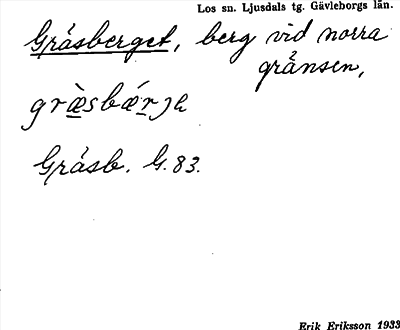 Los sn. Ljusdals tg. Gävleborgs län.
Gråsberget, berg vid norra
gränsen,
græ̀sbǽrjɐ
Gråsb. G. 83.
Erik Eriksson 1933